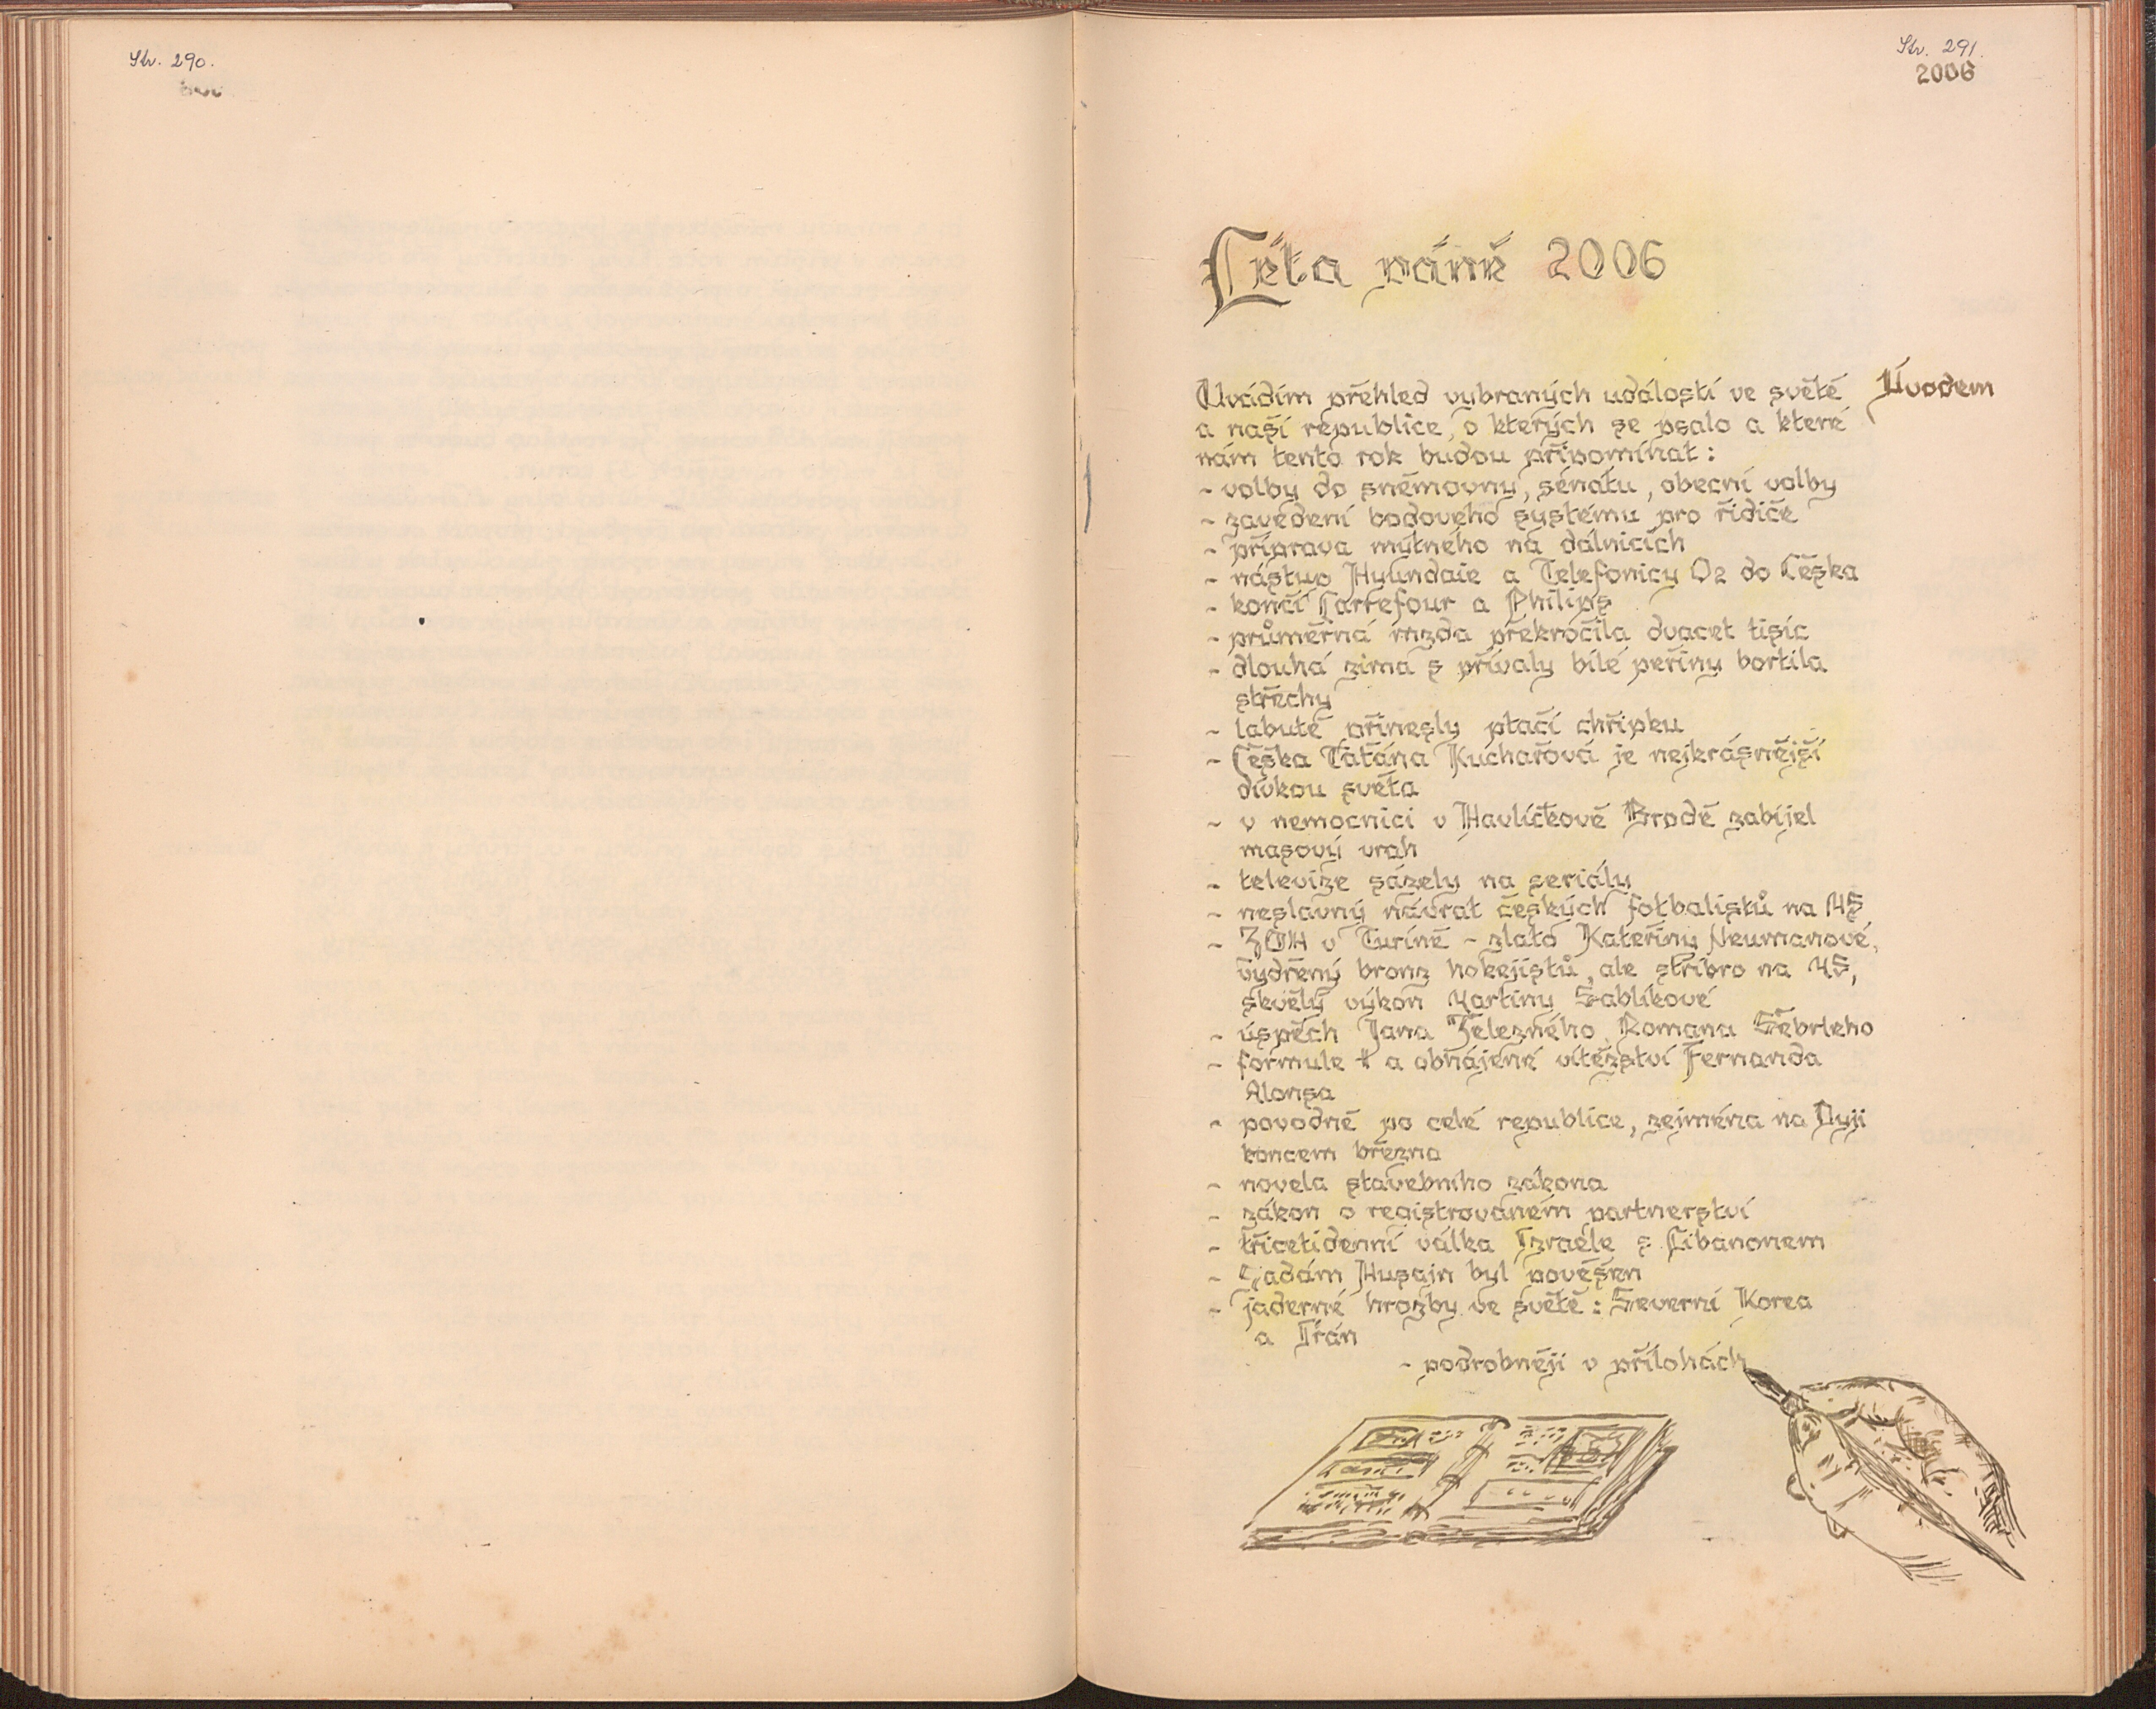 Str. 290.
Str. 291.
2006
Léta páně 2006
Úvodem
Uvádím přehled vybraných událostí ve světě
a naší republice, o kterých se psalo a které
nám tento rok budou připomínat:
- volby do sněmovny, senátu, obecní volby
- zavedení bodového systému pro řidiče
- příprava mýtného na dálnicích
- nástup Hyundaie a Telefonicy O2 do Česka
- končí Carrefour a Philips
- průměrná mzda překročila dvacet tisíc
- dlouhá zima s přívaly bílé peřiny bortila
střechy
- labutě přinesly ptačí chřipku
- Češka Taťána Kuchařová je nejkrásnější
dívkou světa
- v nemocnici v Havlíčkově Brodě zabíjel
masový vrah
- televize sázely na seriály
- neslavný návrat českých fotbalistů na MS
- ZOH v Turíně - zlato Kateřiny Neumanové,
vydřený bronz hokejistů, ale stříbro na MS,
skvělý výkon Martiny Sáblíkové
- úspěch Jana Železného, Romana Šebrleho
- formule 1 a obhájené vítězství Fernanda
Alonsa
- povodně po celé republice, zejména na Dyji
koncem března
- novela stavebního zákona
- zákon o registrovaném partnerství
- třicetidenní válka Izraele s Libanonem
- Sadám Husajn byl pověšen
- jaderné hrozby ve světě: Severní Korea
a Írán
- podrobněji v přílohách